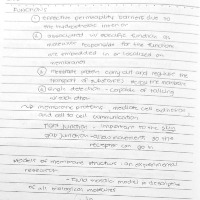 FUNCTIONS
① effective permeability barriers due to
the hydrophobic interior
② associated w/ specific functions as
molecules responsible for the functions
are embedded in or localized on
membranes
③ membrane proteins carry out and regulate the
transport of substances across the membrane
④ signal detection - capable of talking
w/ each other
membrane proteins mediate cell adhesion
and cell to cell communication
tight junction - important to the
gap junction - allow movements so that
can go in
models of membrane structure: an experimental
research
- fluid mosaic model is descriptive
of all biological membranes